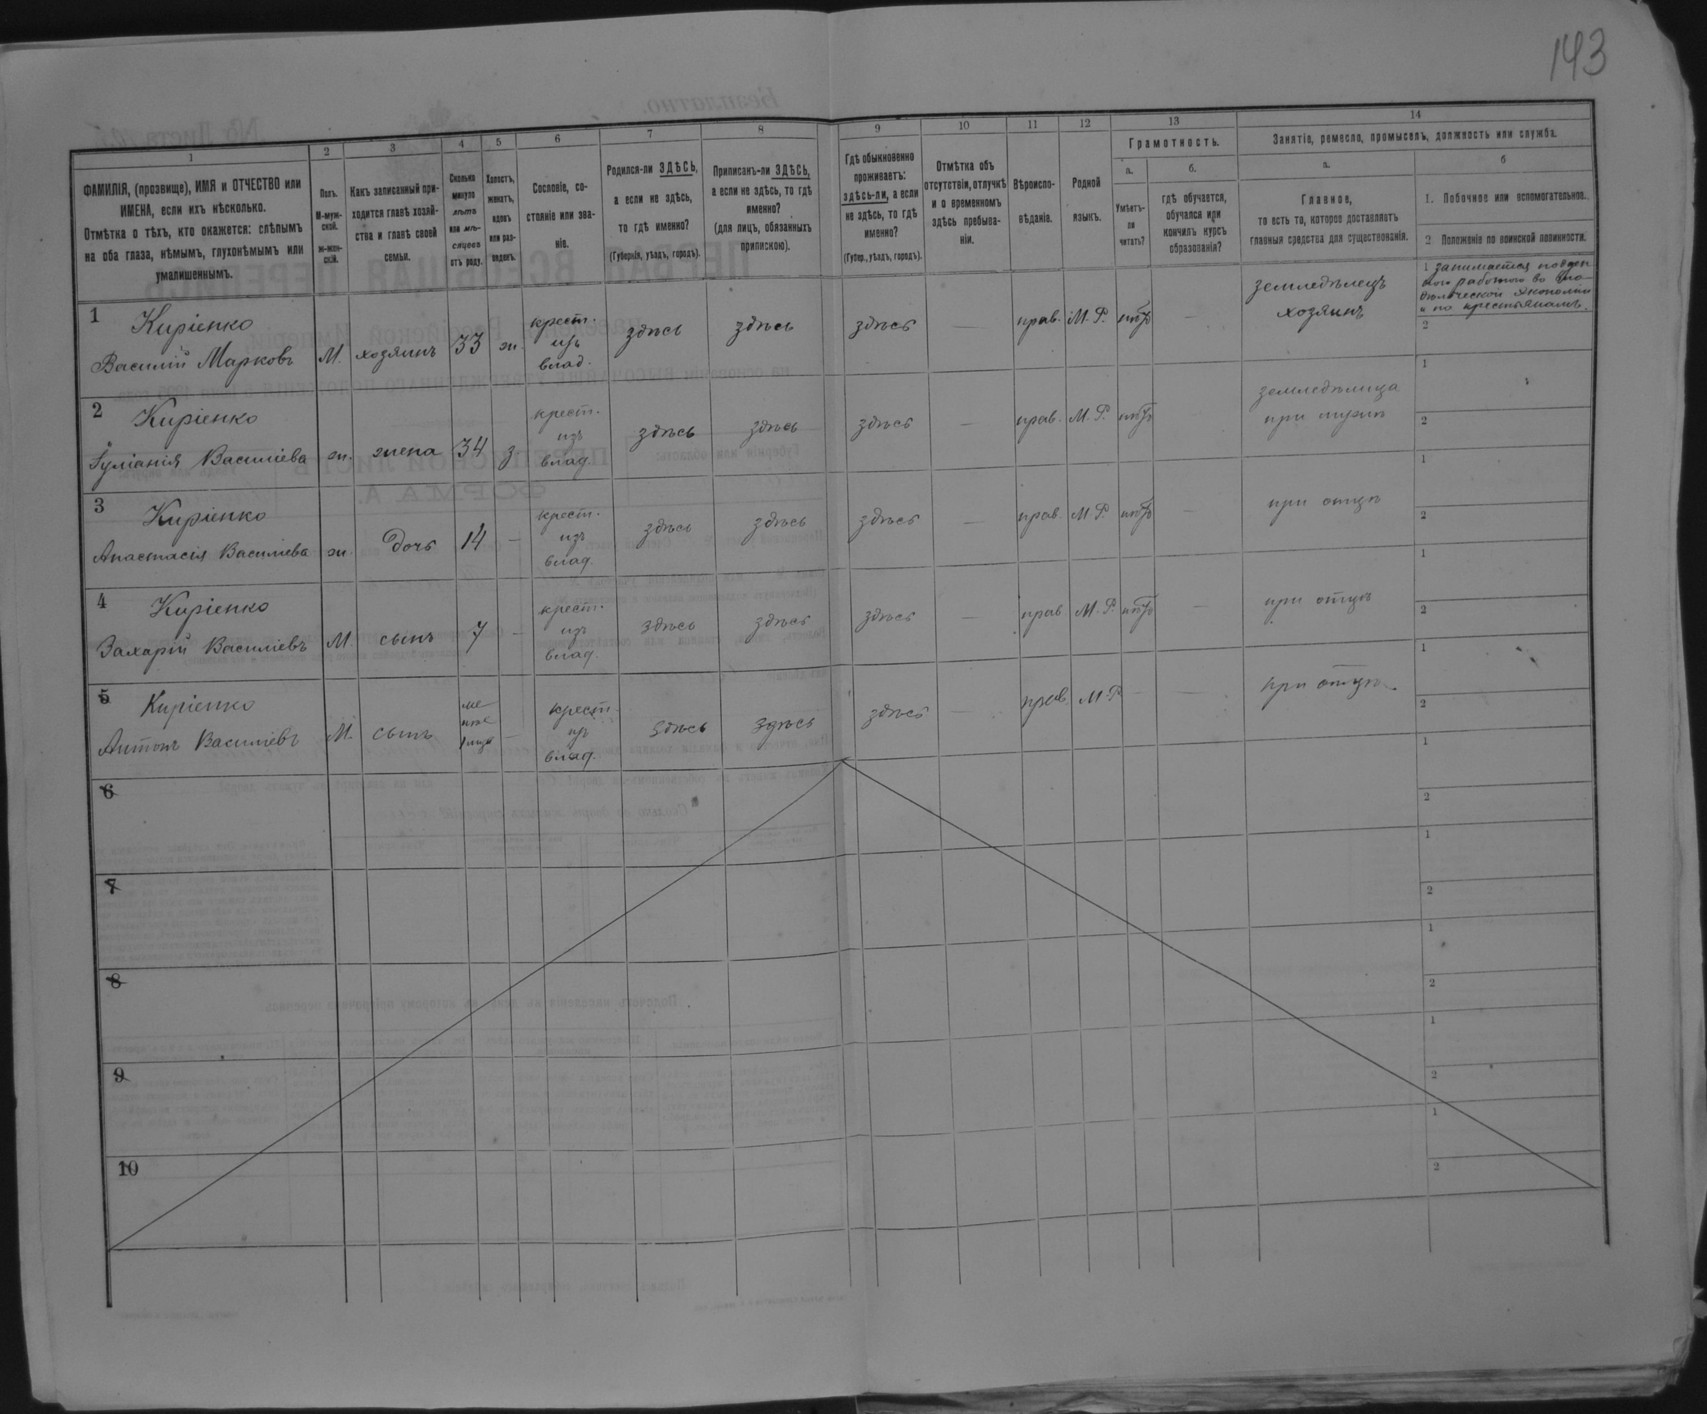 143
1
2
3
4
5
6
7
8
9
10
11
12
13
14
ФАМИЛІЯ, (прозвище), ИМЯ и ОТЧЕСТВО или
ИМЕНА, если ихъ нѣсколько.
Отмѣтка о тѣхъ, кто окажется: слѣпымъ
на оба глаза, нѣмымъ, глухонѣмымъ или
умалишеннымъ.
Полъ.
М-муж-
ской.
ж-жен-
скій.
Какъ записанный при-
ходится главѣ хозяй-
ства и главѣ своей
семьи.
Сколько
минуло
лѣтъ
или мѣ-
сяцевъ
отъ роду.
Холостъ,
женатъ,
вдовъ
или раз-
веденъ.
Сословіе, со-
стояніе или зва-
ніе.
Родился-ли ЗДѢСЬ,
а если не здѣсь,
то гдѣ именно?
(Губернія, уѣздъ, городъ).
Приписанъ-ли ЗДѢСЬ,
а если не здѣсь, то гдѣ
именно?
(для лицъ, обязанныхъ
припискою).
Гдѣ обыкновенно
проживаетъ:
здѣсь-ли, а если
не здѣсь, то гдѣ
именно?
(Губер., уѣздъ, городъ).
Отмѣтка объ
отсутствіи, отлучкѣ
и о временномъ
здѣсь пребыва-
ніи.
Вѣроиспо-
вѣданіе.
Родной
языкъ.
Грамотность.
а.
Умѣетъ-
ли
читать?
б.
гдѣ обучается,
обучался или
кончилъ курсъ
образованія?
Занятіе, ремесло, промыселъ, должность или служба.
а.
Главное,
то есть то, которое доставляетъ
главныя средства для существованія.
б
1. Побочное или вспомогательное.
2 Положеніе по воинской повинности.
1
Киріенко
Василій Марковъ
М.
хозяинъ
33
ж.
крест.
изъ
влад.
здѣсь
здѣсь
здѣсь
—
прав.
М. Р.
нѣтъ
—
земледѣлецъ
хозяинъ
1 занимается поден
работою во
и по крестьянамъ.
2
2
Киріенко
Іуліанія Василіева
ж.
жена
34
з
крест.
изъ
влад.
здѣсь
здѣсь
здѣсь
—
прав.
М. Р.
нѣтъ
—
земледѣлица
при мужѣ
1
2
3
Киріенко
Анастасія Василіева
ж.
дочь
14
—
крест.
изъ
влад.
здѣсь
здѣсь
здѣсь
—
прав.
М Р.
нѣтъ
—
при отцѣ
1
2
4
Киріенко
Захарій Василіевъ
М.
сынъ
7
—
крест.
изъ
влад.
здѣсь
здѣсь
здѣсь
—
прав
М. Р.
нѣтъ
—
при отцѣ
1
2
5
Киріенко
Антонъ Василіевъ
М.
сынъ
ме
нѣе
1 мца
—
крест.
изъ
влад.
здѣсь
здѣсь
здѣсь
—
прав
М. Р
—
—
при отцѣ.
1
2
6
1
2
7
1
2
8
1
2
9
1
2
10
1
2